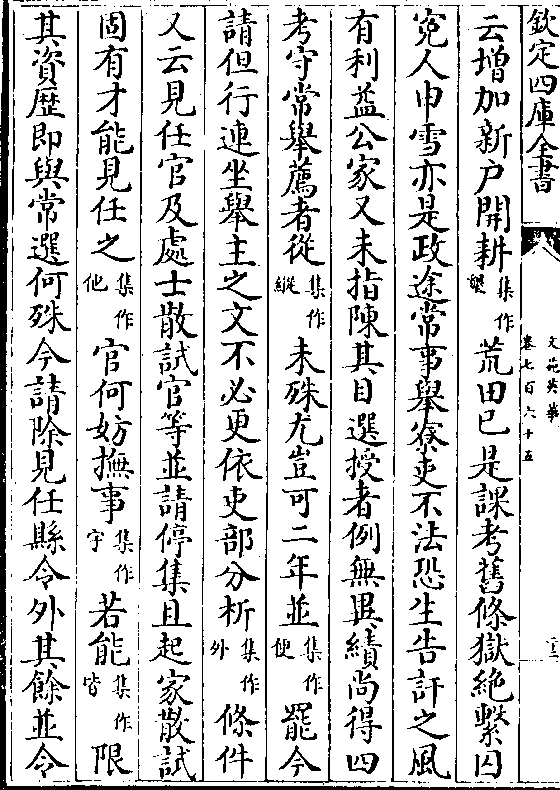 欽定四庫全書
文苑英華
卷七百六十五
云增加新户開耕集作墾荒田已是課考舊條獄絶繫囚
寃人申雪亦是政途常事舉察吏不法恐生告訐之風
有利益公家又未指陳其目選授者例無異績尚得四
考守常舉薦者從集作縱未殊尤豈可二年並集作便罷今
請但行連坐舉主之文不必更依吏部分析集作外條件
又云見任官及處士散試官等並請停集且起家散試
固有才能見任之集作他官何妨撫事集作字若能集作皆限
其資歴即與常選何殊今請除見任縣令外其餘並令